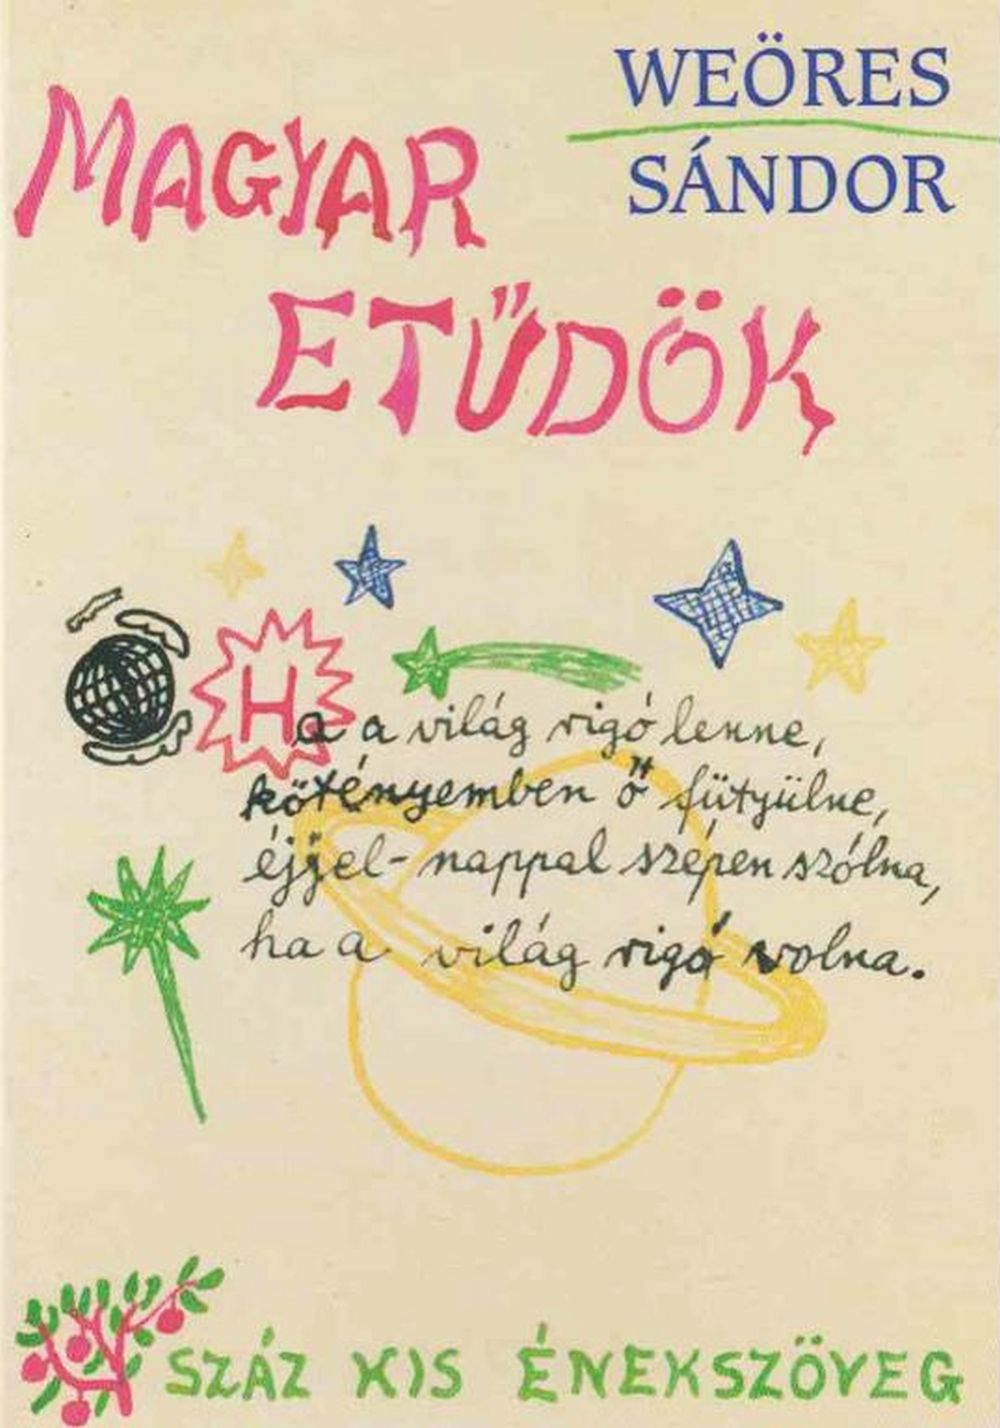 WEÖRES
SÁNDOR
MAGYAR
ETŰDÖK
Ha a világ rigó lenne,
kötényemben ő fütyülne,
éjjel-nappal szépen szólna,
ha a világ rigó volna.
SZÁZ KIS ÉNEKSZÖVEG